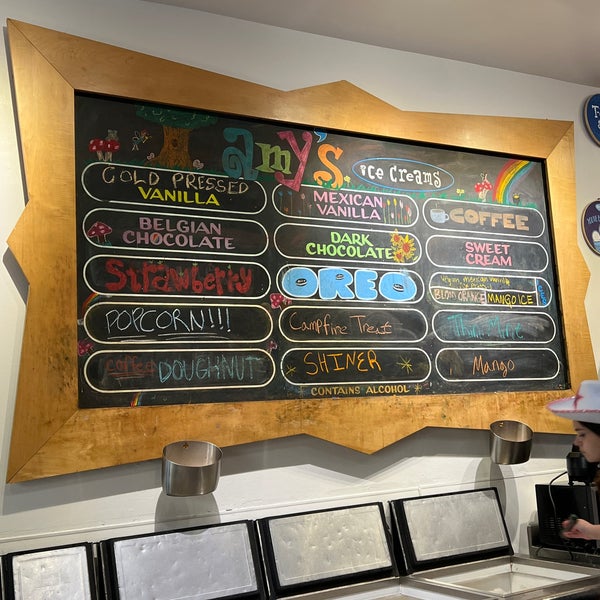 amy's ice creams
COLD PRESSED
VANILLA
MEXICAN
VANILLA
COFFEE
BELGIAN
CHOCOLATE
DARK
CHOCOLATE
SWEET
CREAM
Strawberry
OREO
Vegan Mexican Vanilla
BLOOD ORANGE MANGO ICE
POPCORN!!!
Campfire Treat
Thin Mint
coffee DOUGHNUT
SHINER
CONTAINS ALCOHOL
Mango